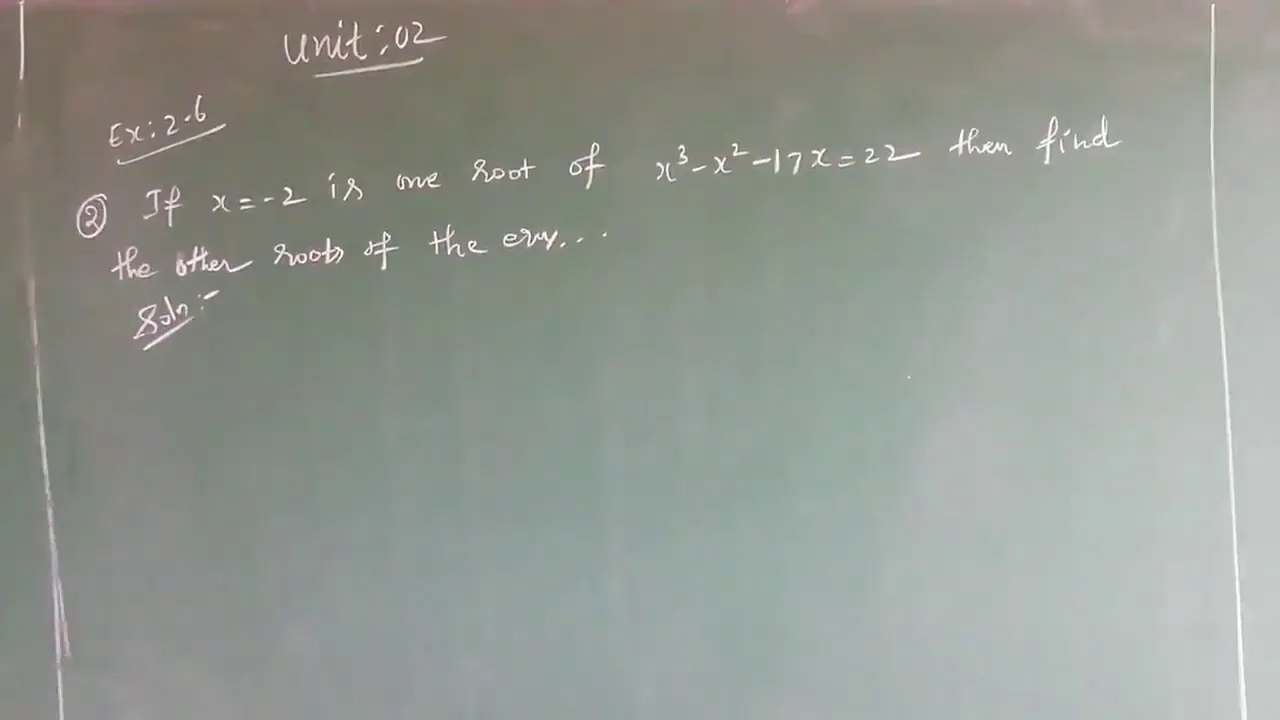 Unit: 02
Ex: 2.6
② If x = -2 is one root of x³ - x² - 17x = 22 then find
the other roots of the
Soln:-